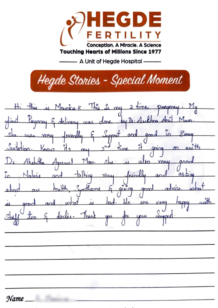 HEGDE
FERTILITY
Conception. A Miracle. A Science
Touching Hearts of Millions Since 1977
A Unit of Hegde Hospital
Hegde Stories - Special Moment
Hi this is This is my 2 time pregnancy. My
first Pregnancy & delivery was done by Dr. Mam
She was very friendly & Support and good in Every
Now its my 2nd time it going on with
Dr. Mam she is also very good
in Nature and talking very friendly and
about our health & giving good advise what
is good and what is bad We are very happy with
staff & doctor Thank you for your Support
Name